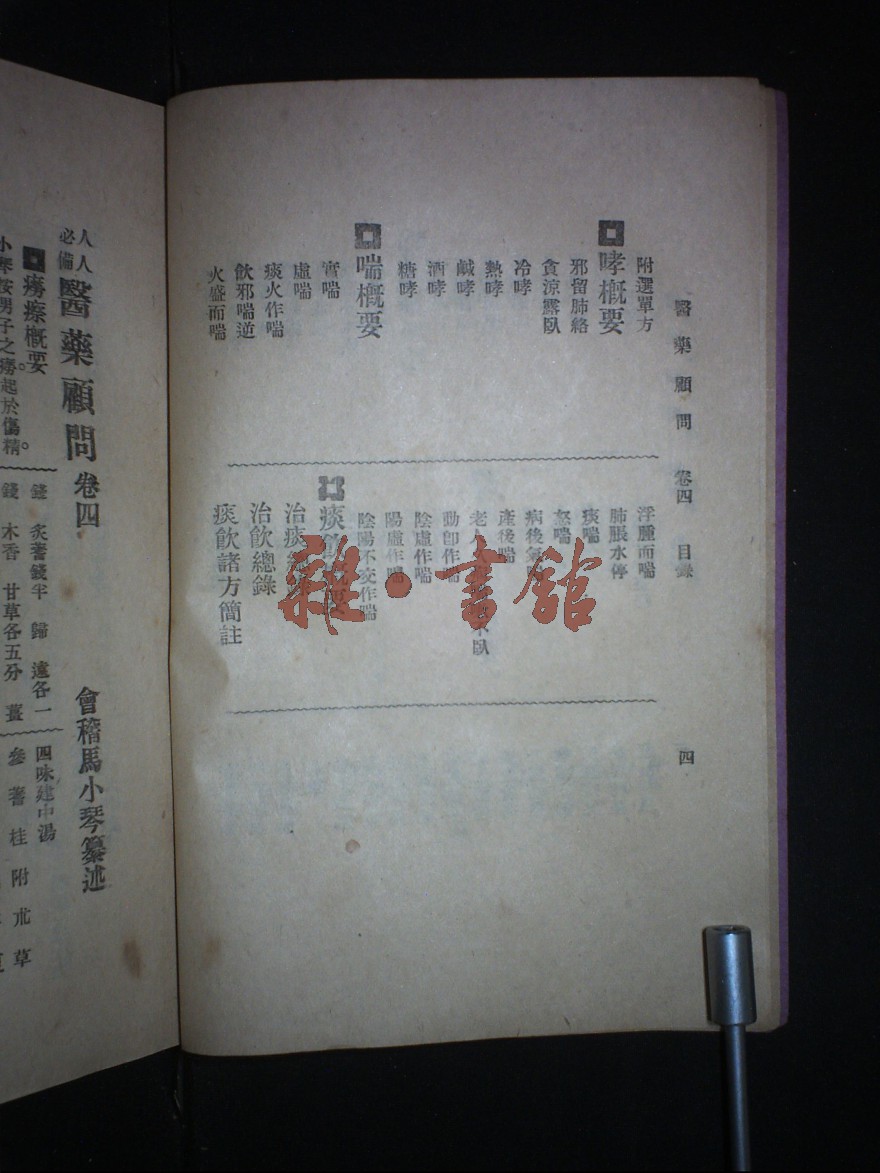 醫藥顧問 卷四 目錄 四
附選單方
哮概要
邪留肺絡
貪涼露臥
冷哮
熱哮
鹹哮
酒哮
糖哮
喘概要
實喘
虛喘
痰火作喘
飲邪喘逆
火盛而喘
浮腫而喘
肺脹水停
痰喘
怒喘
病後氣喘
產後喘
老人久
臥
動卽作喘
陰虛作喘
陽虛作喘
陰陽不交作喘
痰飲概要
治痰總錄
治飲總錄
痰飲諸方簡註
雜·書館
人人必備 醫藥顧問 卷四 會稽馬小琴纂述
癆瘵概要
小琴按男子之癆起於傷精。
錢 炙蓍錢半 歸 遠各一
錢 木香 甘草各五分 薑
四味建中湯
參 蓍 桂 附 朮 草